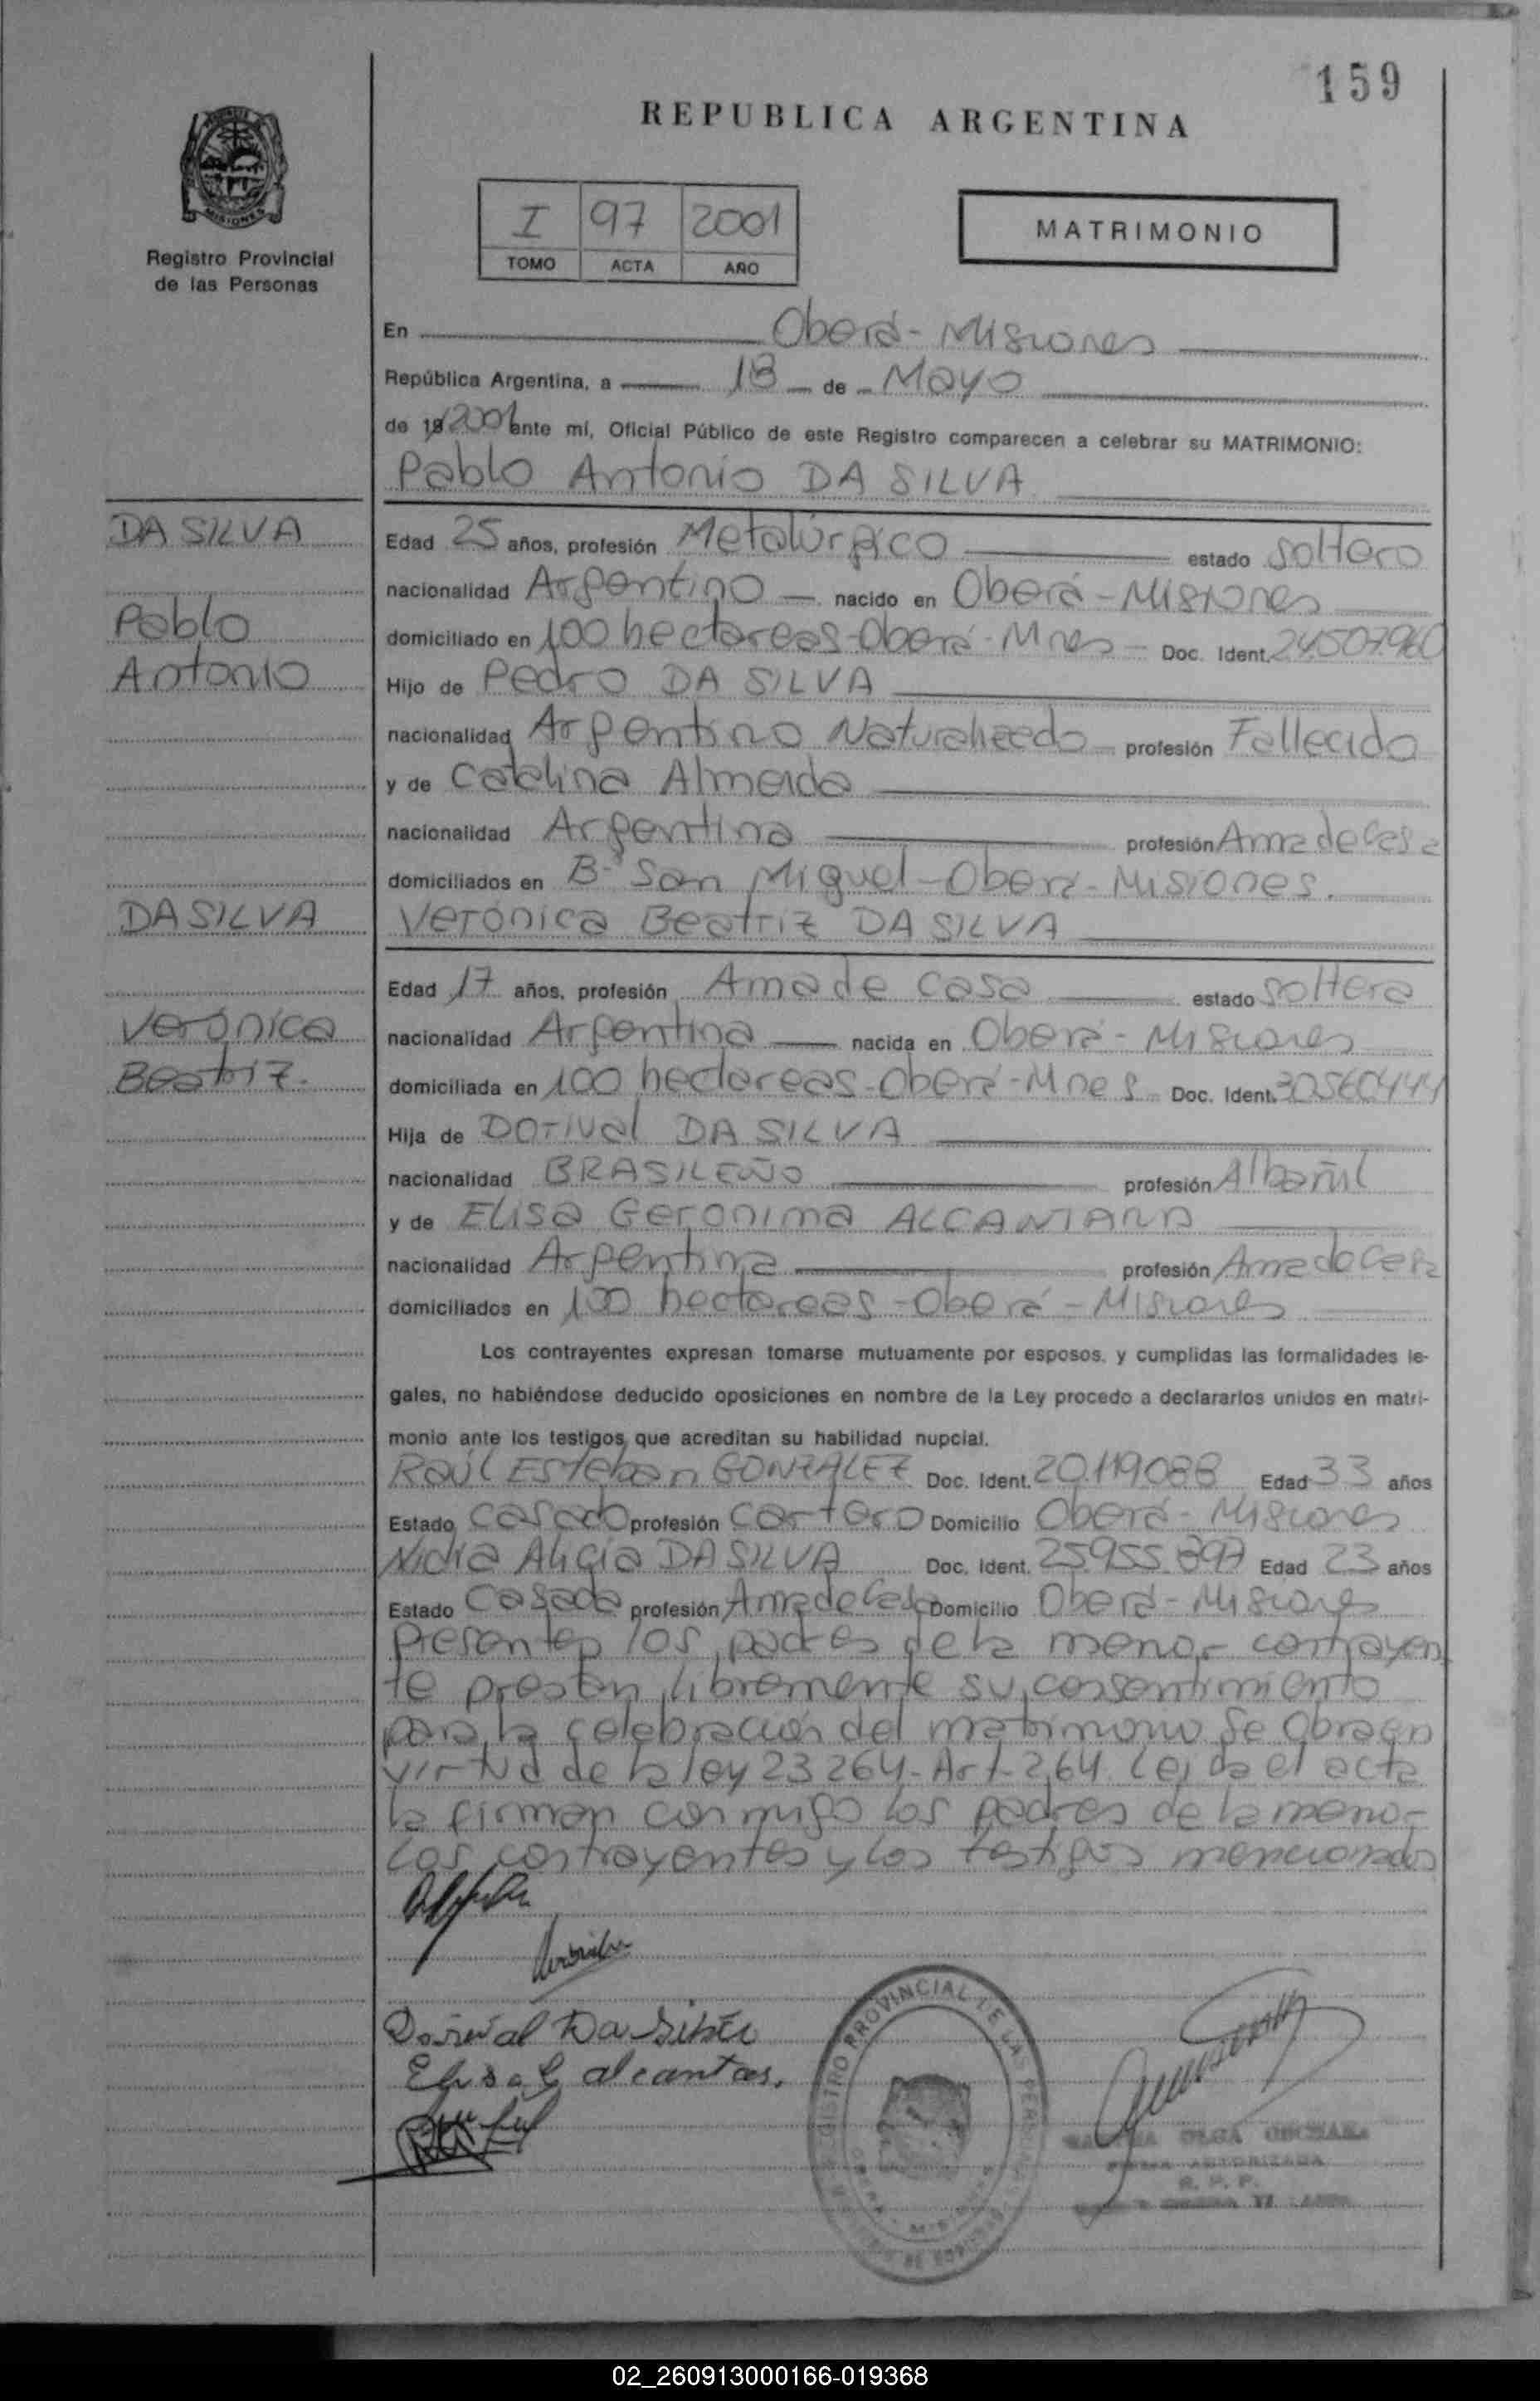 159
REPUBLICA ARGENTINA
MISIONES
Registro Provincial
de las Personas
I 97 2001
TOMO ACTA AÑO
MATRIMONIO
En Oberá - Misiones
República Argentina, a 18 de Mayo
de 19 2001 ante mí, Oficial Público de este Registro comparecen a celebrar su MATRIMONIO:
Pablo Antonio DA SILVA
DA SILVA
Pablo
Antonio
Edad 25 años, profesión Metalúrgico estado soltero
nacionalidad Argentino nacido en Oberá - Misiones
domiciliado en 100 hectareas - Oberá - Mnes Doc. Ident. 24.507.960
Hijo de Pedro DA SILVA
nacionalidad Argentino Naturalizado profesión Fallecido
y de Catalina Almeida
nacionalidad Argentina profesión Ama de Casa
domiciliados en Bº San Miguel - Oberá - Misiones.
DA SILVA
Verónica Beatriz DA SILVA
Verónica
Beatriz.
Edad 17 años, profesión Ama de casa estado soltera
nacionalidad Argentina nacida en Oberá - Misiones
domiciliada en 100 hectareas - Oberá - Mnes Doc. Ident. 30560444
Hija de Dorival DA SILVA
nacionalidad BRASILEÑO profesión Albañil
y de Elisa Geronima ALCANTARA
nacionalidad Argentina profesión Ama de Casa
domiciliados en 100 hectareas - Oberá - Misiones
Los contrayentes expresan tomarse mutuamente por esposos, y cumplidas las formalidades le-
gales, no habiéndose deducido oposiciones en nombre de la Ley procedo a declararlos unidos en matri-
monio ante los testigos que acreditan su habilidad nupcial.
Raúl Esteban GONZALEZ Doc. Ident. 20.119.088 Edad 33 años
Estado Casado profesión Cartero Domicilio Oberá - Misiones
Nidia Alicia DA SILVA Doc. Ident. 25.955.897 Edad 23 años
Estado Casada profesión Ama de Casa Domicilio Oberá - Misiones
Presentes los padres de la menor contrayen
te prestan libremente su consentimiento
para la celebración del matrimonio Se Obra en
virtud de la ley 23264 - Art. 264. Leida el acta
la firman conmigo los padres de la menor
Los contrayentes y los testigos mencionados
Dorival Da Silva
Elisa G alcantar.
REGISTRO PROVINCIAL DE LAS PERSONAS
OLGA
FIRMA AUTORIZADA
R. P. P.
02_260913000166-019368